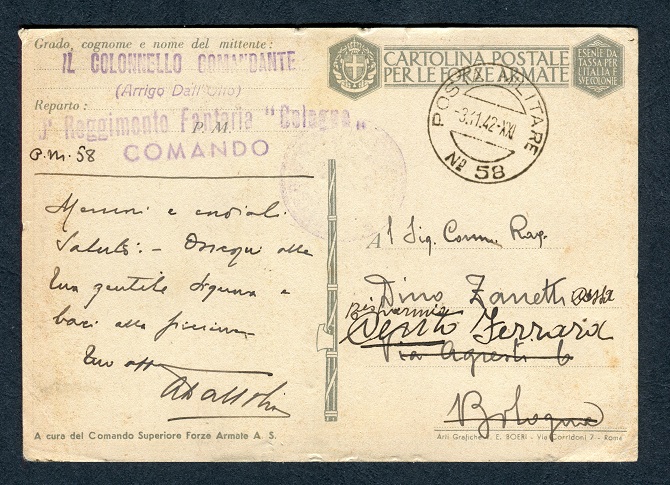 Grado, cognome e nome del mittente:
IL COLONNELLO COMANDANTE
(Arrigo Dall'Olio)
Reparto:
Reggimento Fanteria "Bologna"
P. M.
COMANDO
P.M. 58
CARTOLINA POSTALE
PER LE FORZE ARMATE
ESENTE DA
TASSA PER
L'ITALIA E
SUE COLONIE
POSTA MILITARE
-3.11.42-XXI
Nº 58
e cordiali
Saluti. - Ossequi alla
tua gentile Signora e
baci alla piccina
Tuo aff
ADallOlio
A
Sig. Comm. Rag.
Dino Zanetti
Ferrara
Via Agresti 6
Bologna
A cura del Comando Superiore Forze Armate A. S.
Arti Grafiche V. E. BOERI - Via Corridoni 7 - Roma